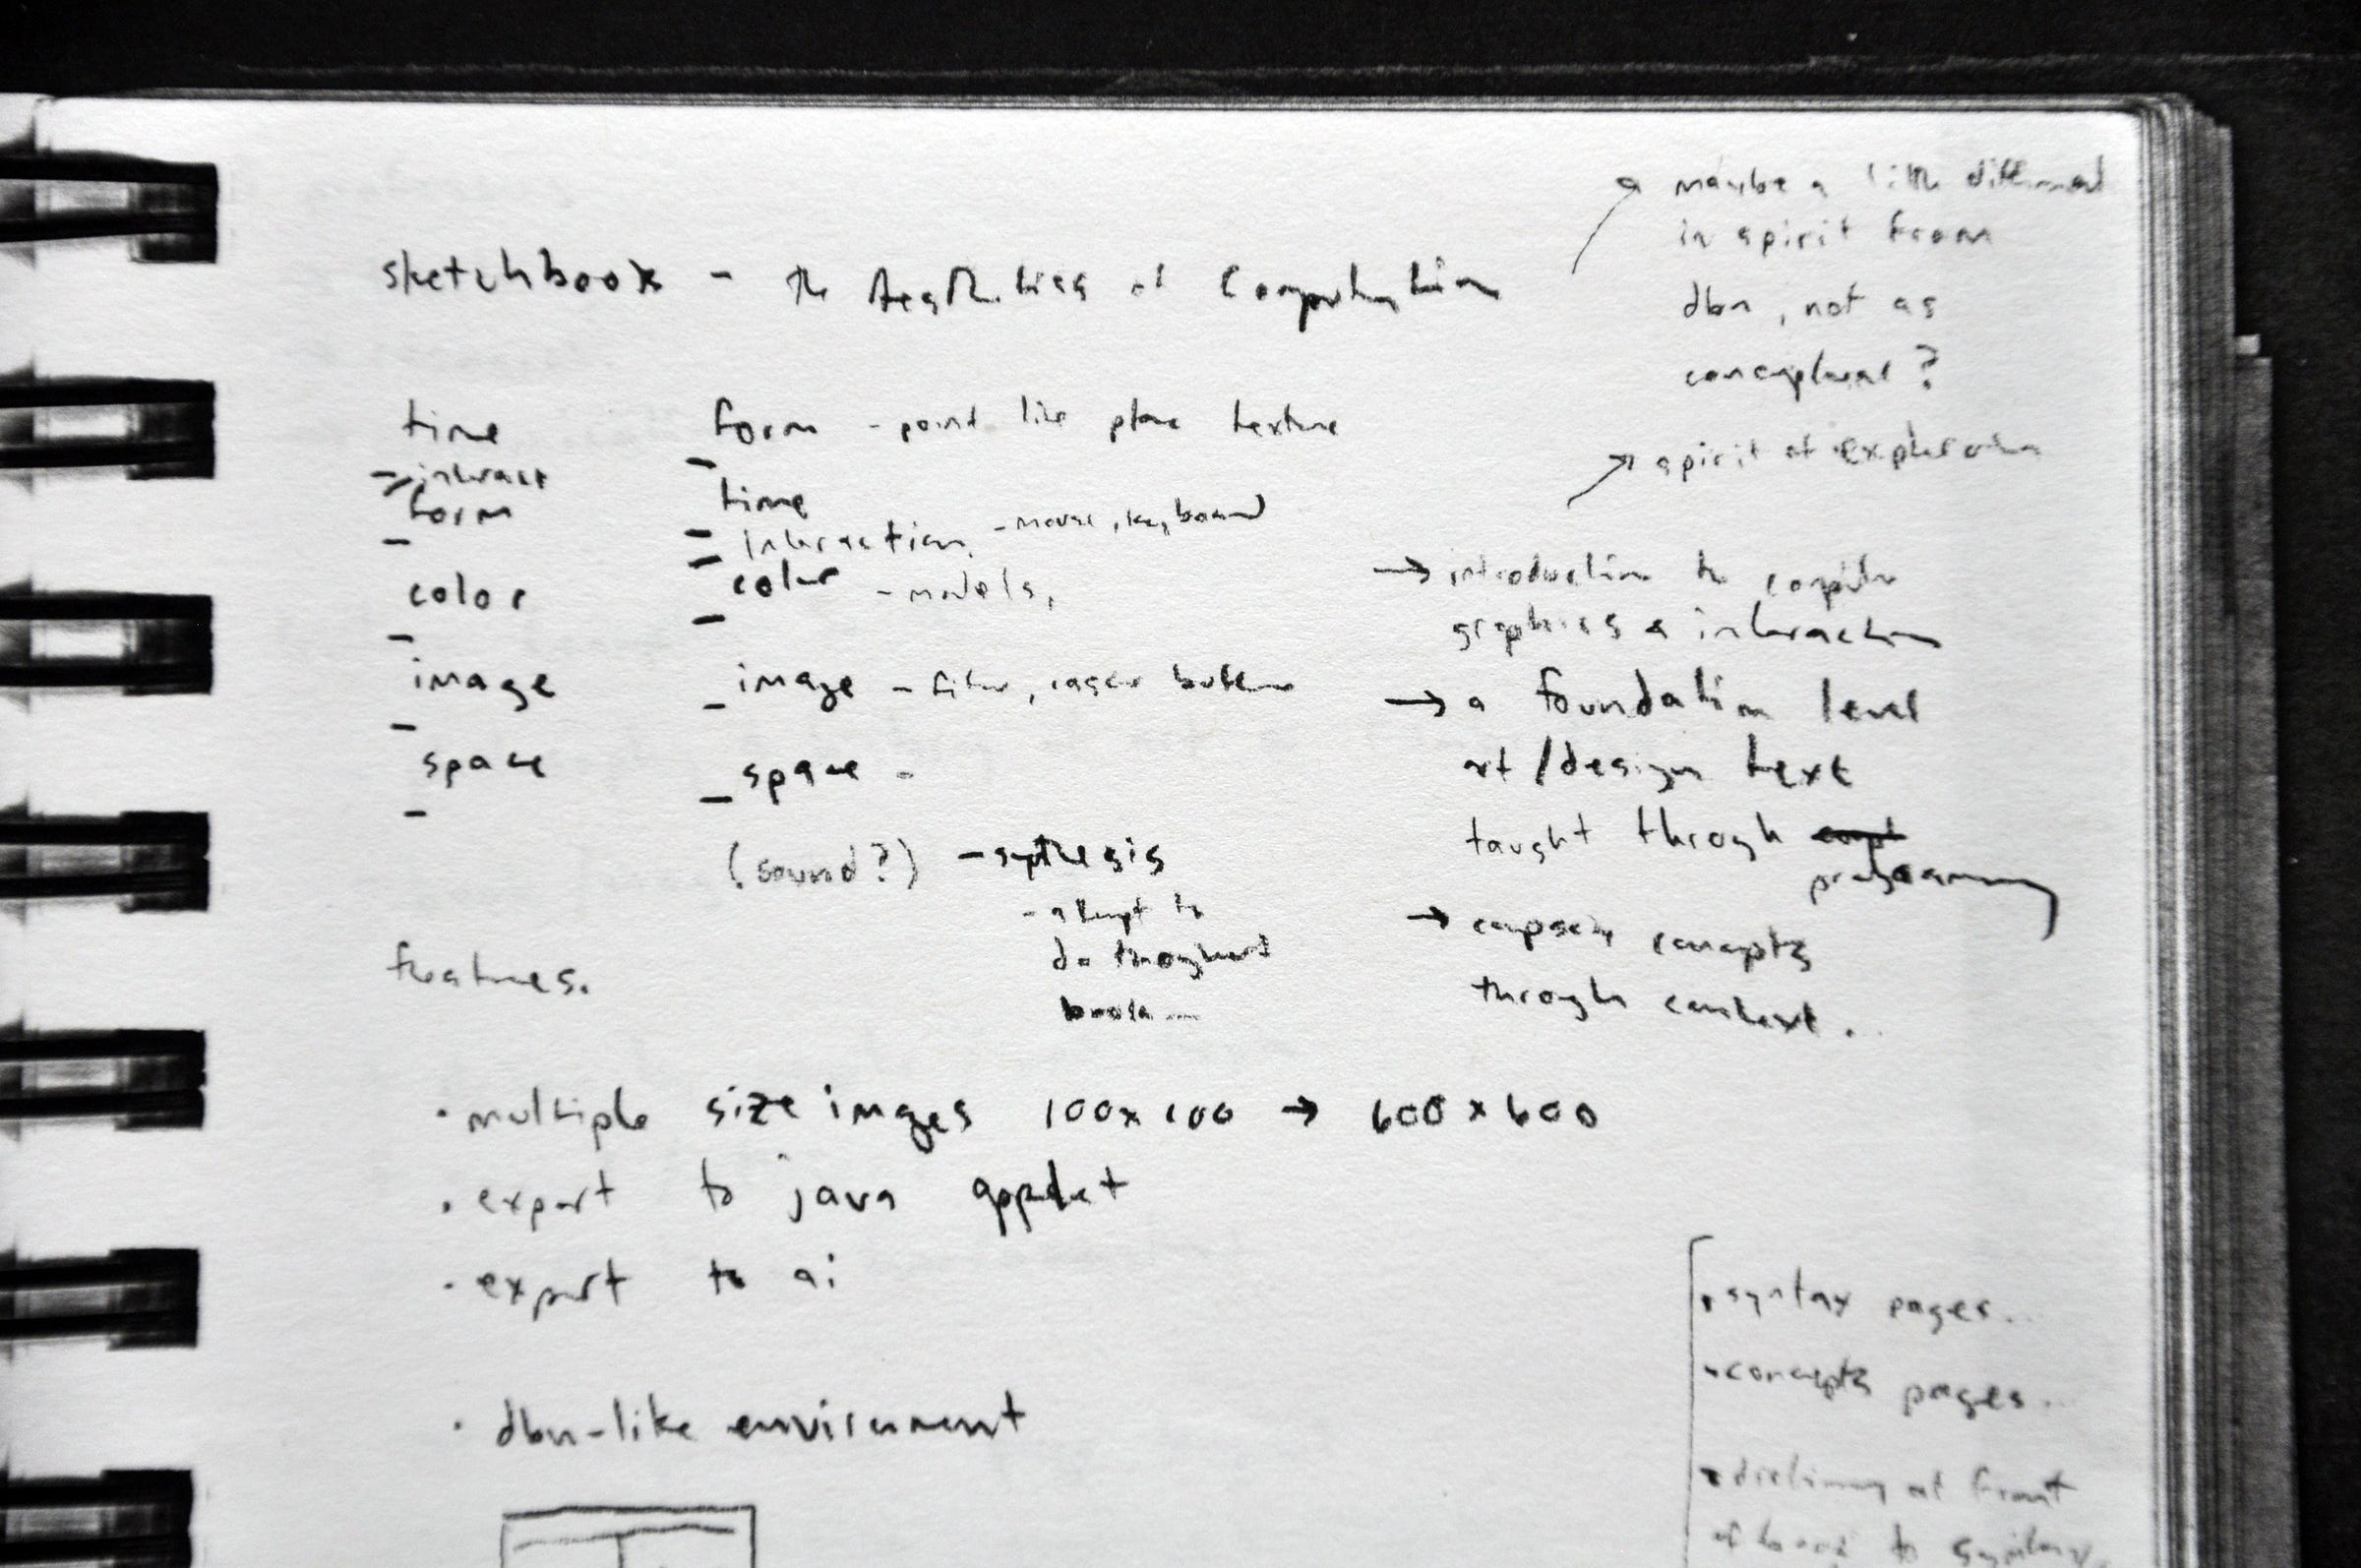 sketchbook - the Aesthetics of Computation
maybe a little different
in spirit from
dbn, not as
conceptual?
spirit of exploration
time
- interact
form
color
image
space
form - point line plane texture
time
interaction - mouse, keyboard
color - models,
image - filter, raster buffer
space -
(sound?) - sythesis
- attempt to
do throughout
book...
→ introduction to computer
graphics & interaction
→ a foundation level
art/design text
taught through
programming
→ concepts
through context.
features.
· multiple size images 100x100 → 600x600
· export to java applet
· export to ai
· dbn-like enviroment
· syntax pages...
· concepts pages...
· dictionary at front
of book to